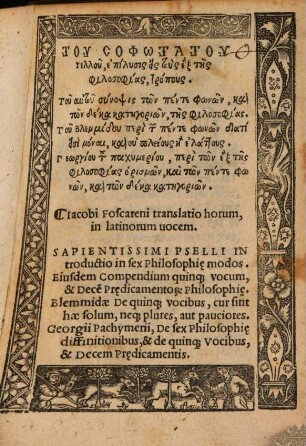 ΤΟΥ ΣΟΦΩΤΑΤΟΥ
τέλλου, ἐπίλυσις εἰς τοὺς ἓξ τῆς
φιλοσοφίας, τρόπους.
Τοῦ αὐτοῦ σύνοψις τῶν πέντε φωνῶν, καὶ
τῶν δέκα κατηγοριῶν, τῆς φιλοσοφίας.
Τοῦ βλεμμίδου περὶ τῶν πέντε φωνῶν διατί
καὶ μόναι, καὶ οὐ πλείους ἢ ἐλάττους.
Γεωργίου τοῦ παχυμερίου, περὶ τῶν ἓξ τῆς
φιλοσοφίας ὁρισμῶν, καὶ τῶν πέντε φω
νῶν, καὶ τῶν δέκα κατηγοριῶν.
Iacobi Foscareni translatio horum,
in latinorum uocem.
SAPIENTISSIMI PSELLI IN
troductio in sex Philosophię modos.
Eiusdem Compendium quinq; vocum,
& Decē Prędicamentoꝝ Philosophię.
Blemmidæ De quinq; vocibus, cur sint
hæ solum, neq; plures, aut pauciores.
Georgii Pachymerii, De sex Philosophię
diffinitionibus, & de quinq; Vocibus,
& Decem Prędicamentis.